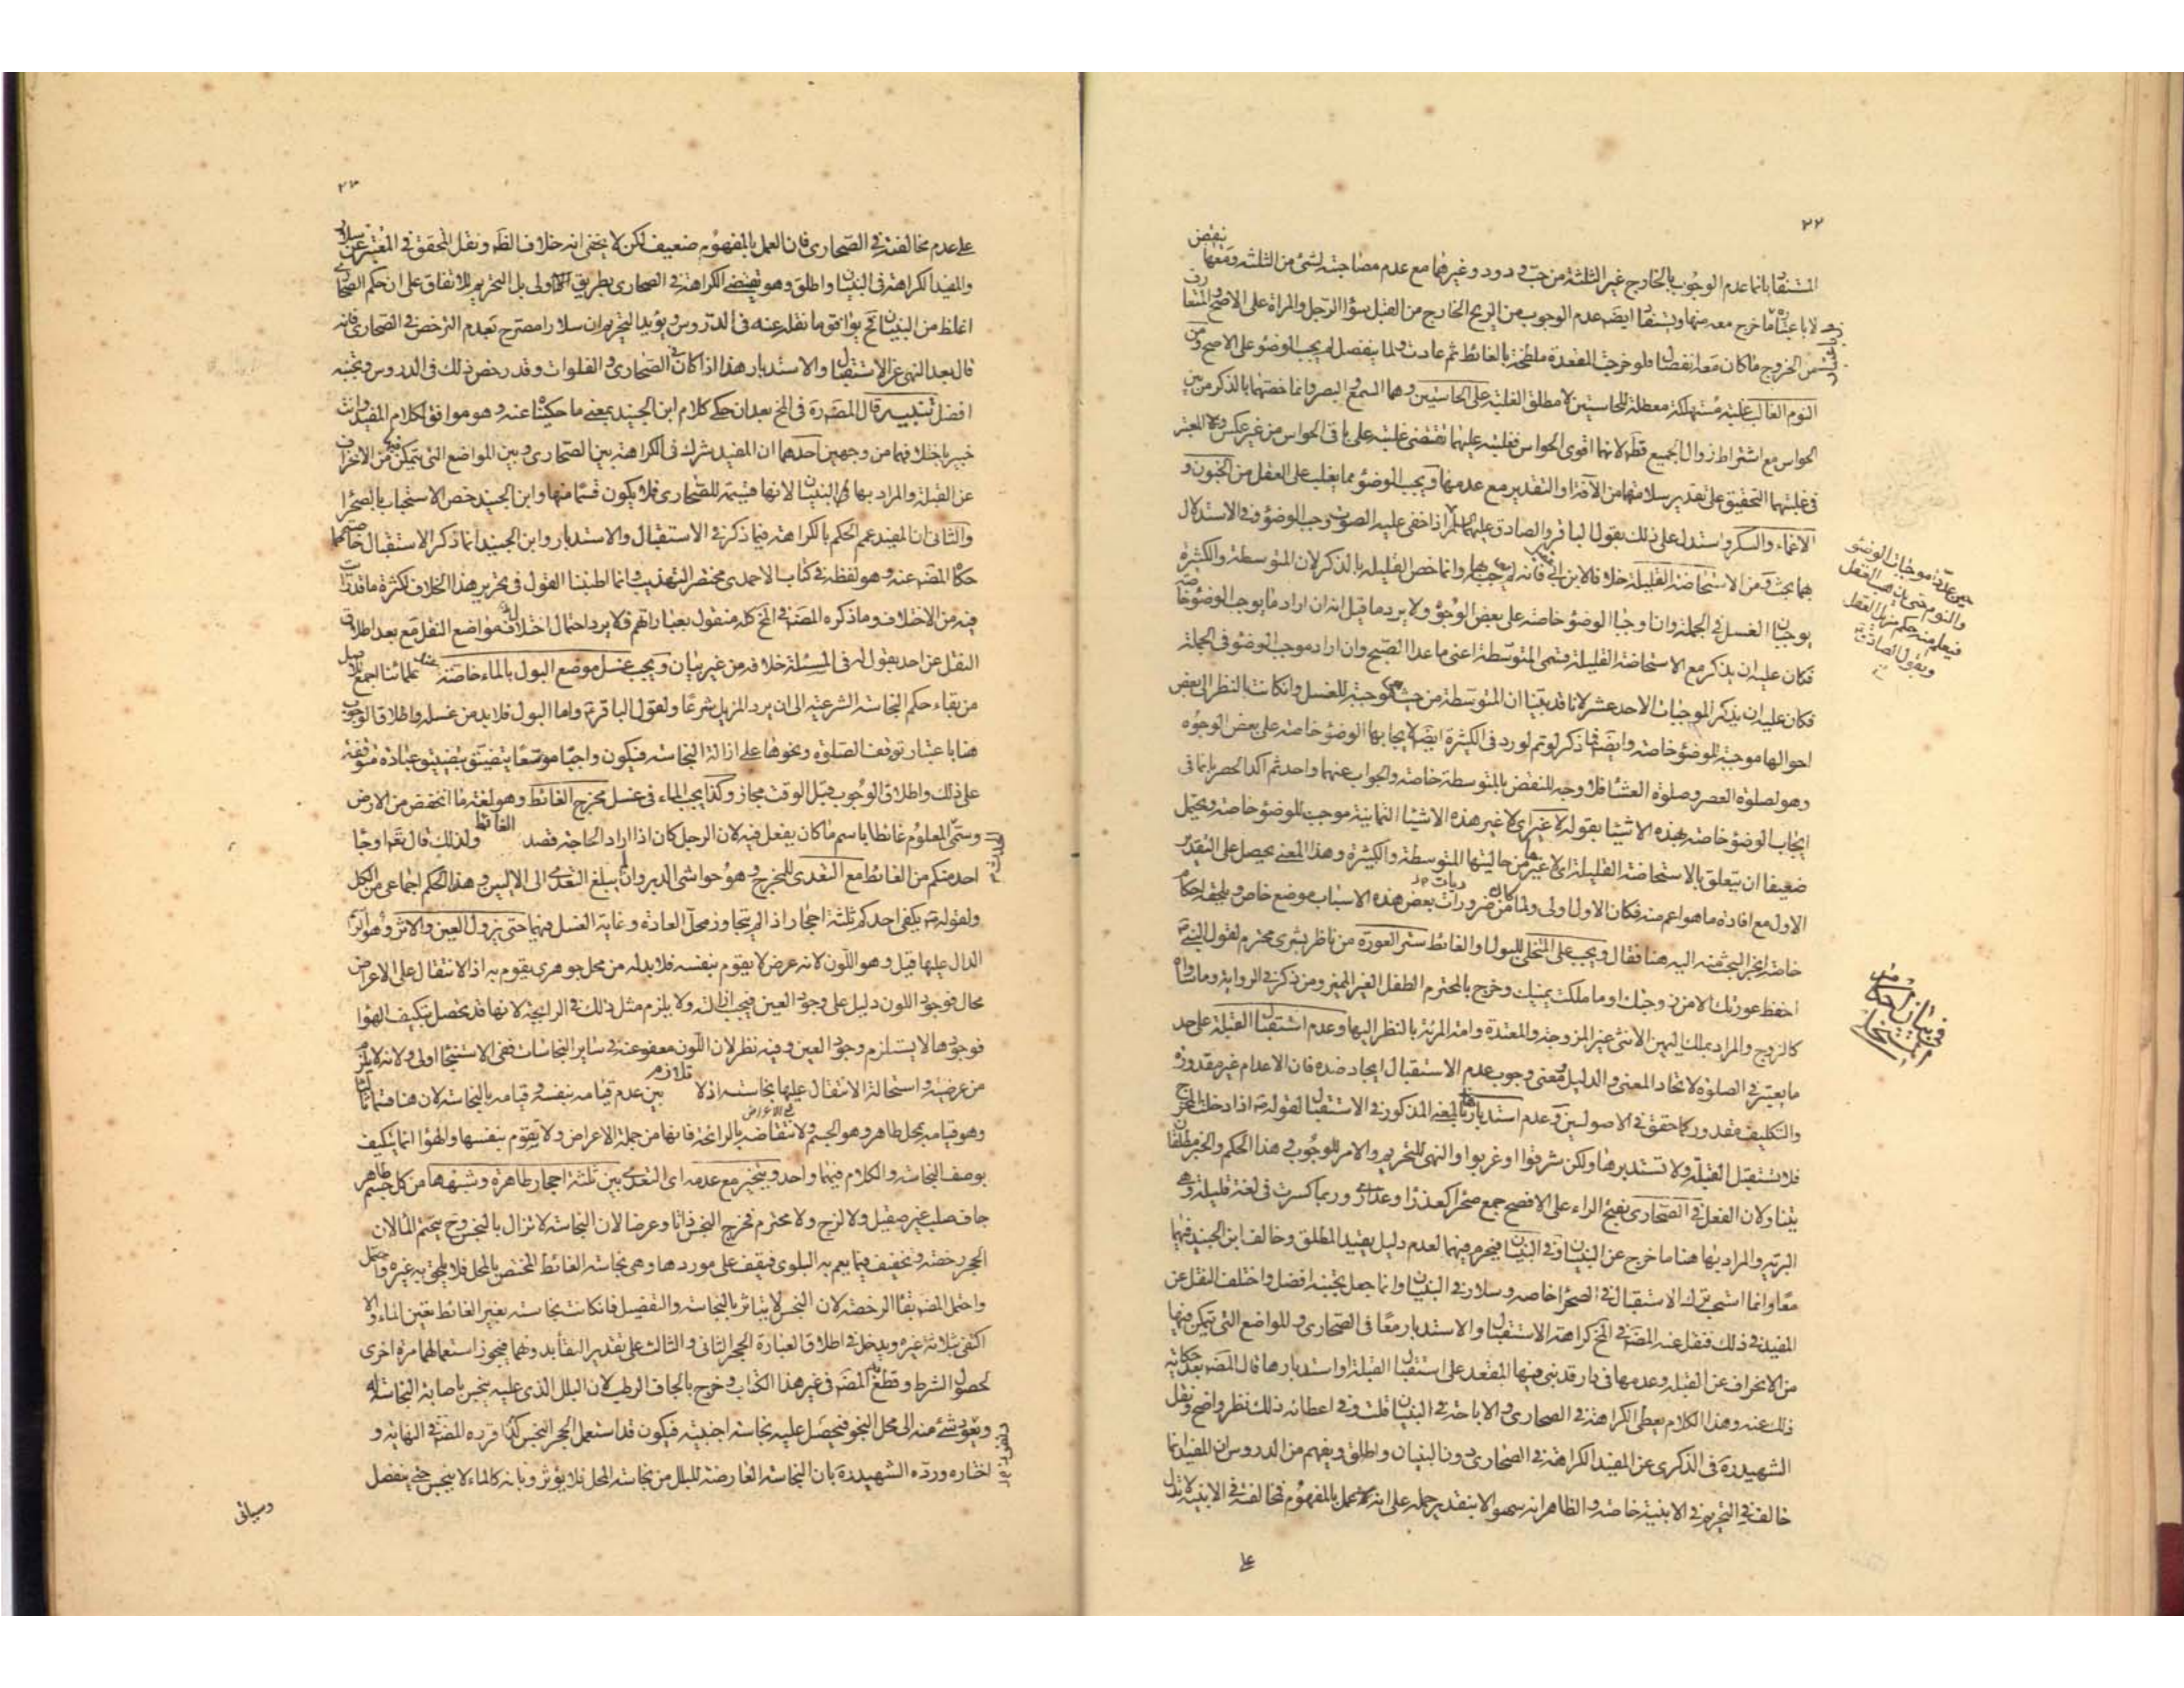 ٢٢
المستفاد بانما عدم الوجوب بالخارج غير الثلثة من حب و دود و غيرهما مع عدم مصاحبته لشئ من الثلثة ومعها ينقض
لا باعتباره ما خرج معه منها ويستفاد ايضا عدم الوجوب من الريح الخارج من القبل سواء الرجل والمراة على الاصح والمتعارف
من الخروج ما كان معه انفصال فلو خرجت المقعدة ملطخة بالغائط ثم عادت ولما ينفصل لم يجب الوضوء على الاصح ومن
النوم الغالب غلبة مستهلكة معطلة للحاستين لا مطلق الغلبة على الحاستين وهما السمع والبصر وانما خصهما بالذكر من بين
الحواس مع اشتراط زوال الجميع قطعا لانهما اقوى الحواس فغلبته عليهما تقتضى غلبته على باقى الحواس من غير عكس والمعتبر
فى غلبتهما التحقيق على تقدير سلامتهما من الآفة او التقدير مع عدمها ويجب الوضوء مما يغلب على العقل من الجنون و
الاغماء والسكر واستدل على ذلك بقول الباقر والصادق عليهما السلم اذا خفى عليه الصوت وجب الوضوء وفى الاستدلال
بهما بحث ومن الاستحاضة القليلة خلافا لابن ابى عقيل فانه لم يوجب بها وانما خص القليلة بالذكر لان المتوسطة والكثيرة
يوجبان الغسل فى الجملة وان اوجبا الوضوء خاصة على بعض الوجوه ولا يرد ما قيل انه ان اراد ما يوجب الوضوء خاصة
فكان عليه ان يذكر مع الاستحاضة القليلة قسمى المتوسطة اعنى ما عدا الصبح وان اراد موجب الوضوء فى الجملة
فكان عليه ان يذكر الموجبات الاحد عشر لانا قد بينا ان المتوسطة من حيث هى موجبة للغسل وان كانت بالنظر الى بعض
احوالها موجبة للوضوء خاصة وايضا فما ذكر لو تم لورد فى الكثيرة ايضا لايجابها الوضوء خاصة على بعض الوجوه
وهو لصلوة العصر وصلوة العشاء فلا وجه للنقض بالمتوسطة خاصة والجواب عنهما واحد ثم اكد الحصر بانما فى
ايجاب الوضوء خاصة بهذه الاشياء بقوله لا غير اى لا غير هذه الاشياء الثمانية موجب للوضوء خاصة ويحتمل
ضعيفا ان يتعلق بالاستحاضة القليلة اى لا غيرها من حالتيها المتوسطة والكثيرة وهذا المعنى يحصل على التقدير
الاول مع افادة ما هو اعم منه فكان الاول اولى ولما كان من ضروريات بعض هذه الاسباب موضع خاص ويلحقه احكام
خاصة انجر البحث منه اليه هنا فقال ويجب على المتخلى للبول والغائط ستر العورة من ناظر بشرى محترم لقول النبى
احفظ عورتك الا من زوجتك او ما ملكت يمينك وخرج بالمحترم الطفل الغير المميز ومن ذكر فى الرواية وما ساواه
كالزوج والمراد بملك اليمين الانثى غير المزوجة والمعتدة وامته المرئية بالنظر اليها وعدم استقبال القبلة على حد
ما يعتبر فى الصلوة لاتحاد المعنى والدليل ومعنى وجوب عدم الاستقبال ايجاد ضده فان الاعدام غير مقدورة
والتكليف بمقدور كما حقق فى الاصولين وعدم استدبارها بالمعنى المذكور فى الاستقبال لقوله ص اذا دخلت المخرج
فلا تستقبل القبلة ولا تستدبرها ولكن شرقوا او غربوا والنهى للتحريم والامر للوجوب وهذا الحكم والخبر مطلقان
يتناولان الفعل فى الصحارى بفتح الراء على الافصح جمع صحراء كعذراء وعذارى وربما كسرت فى لغة قليلة وهى
البرية والمراد بها هنا ما خرج عن البنيان او فى البنيان فيحرم فيهما لعدم دليل يقيد المطلق وخالف ابن الجنيد فيهما
معا وانما استحب ترك الاستقبال فى الصحراء خاصة وسلار فى البنيان وانما جعل تجنبه افضل واختلف النقل عن
المفيد فى ذلك فنقل عنه المصنف فى المخ كراهة الاستقبال والاستدبار معا فى الصحارى والمواضع التى يتمكن فيها
من الانحراف عن القبلة وعدمها فى دار قد بنى فيها المقعد على استقبال القبلة او استدبارها قال المصنف بعد حكاية
ذلك عنه وهذا الكلام يعطى الكراهة فى الصحارى والاباحة فى البنيان قلت وفى اعطائه ذلك نظر واضح ونقل
الشهيد ره فى الذكرى عن المفيد الكراهة فى الصحارى دون البنيان واطلق ويفهم من الدروس ان المفيد انما
خالف فى التحريم فى الابنية خاصة والظاهر انه سهو الا بتقدير حمله على انه لا عمل بالمفهوم فمخالفته فى الابنية لا تدل
على
حيث عد من موجبات الوضوء
والنوم حتى يذهب العقل
فيعلم منه حكم مزيل العقل
وبقول الصادق
٢٣
على عدم مخالفته فى الصحارى فان العمل بالمفهوم ضعيف لكن لا يخفى انه خلاف الظ ونقل المحقق فى المعتبر عن سلار
والمفيد الكراهة فى البنيان واطلق وهو يقتضى الكراهة فى الصحارى بطريق اولى بل التحريم للاتفاق على ان حكم الصحارى
اغلظ من البنيان فح يوافق ما نقله عنه فى الدروس ويؤيد التحريم ان سلارا مصرح بعدم الترخص فى الصحارى فانه
قال بعد النهى عن الاستقبال والاستدبار هذا اذا كان فى الصحارى والفلوات وقد رخص ذلك فى الدور وتجنبه
افضل تنبيه قال المصنف ره فى المخ بعد ان حكى كلام ابن الجنيد بمعنى ما حكيناه عنه وهو موافق لكلام المفيد وانت
خبير باختلافهما من وجهين احدهما ان المفيد شرك فى الكراهة بين الصحارى وبين المواضع التى يتمكن فيها من الانحراف
عن القبلة والمراد بها فى البنيان لانها قسيمة للصحارى فلا يكون قسما منها وابن الجنيد خص الاستحباب بالصحراء
والثانى ان المفيد عمم الحكم بالكراهة فيما ذكر فى الاستقبال والاستدبار وابن الجنيد انما ذكر الاستقبال خاصة كما
حكاه المصنف عنه وهو لفظه فى كتاب الاحمدى مختصر التهذيب وانما اطنبنا القول فى تحرير هذا الخلاف لكثرة ما قد رايت
فيه من الاختلاف وما ذكره المصنف فى المخ كله منقول بعباراتهم فلا يرد احتمال اختلاف مواضع النقل مع بعد اطلاق
النقل عن احد بقول له فى المسئلة خلافه من غير بيان ويجب غسل موضع البول بالماء خاصة عند علمائنا اجمع لاصل
من بقاء حكم النجاسة الشرعية الى ان يرد المزيل شرعا ولقول الباقر واما البول فلا بد من غسله واطلاق الوجوب
هنا باعتبار توقف الصلوة ونحوها على ازالة النجاسة فيكون واجبا موسعا يتضيق بتضييق عبادة متوقفة
على ذلك واطلاق الوجوب قبل الوقت مجاز وكذا يجب الماء فى غسل مخرج الغائط وهو لغة ما انخفض من الارض
وسمى المعلوم غائطا باسم ما كان يفعل فيه لان الرجل كان اذا اراد الحاجة قصد الغائط ولذلك قال تعالى او جاء
احد منكم من الغائط مع التعدى للمخرج وهو حواشى الدبر وان لم يبلغ التعدى الى الاليين وهذا الحكم اجماعى من الكل
ولقوله ص يكفى احدكم ثلثة احجار اذا لم يتجاوز محل العادة وغاية الغسل فيهما حتى يزول العين والاثر وهو
الدال عليها قيل وهو اللون لانه عرض لا يقوم بنفسه فلا بد له من محل جوهرى يقوم به اذ الانتقال على الاعراض
محال فوجود اللون دليل على وجود العين فيجب ازالته ولا يلزم مثل ذلك فى الرايحة لانها قد تحصل بتكيف الهواء
فوجودها لا يستلزم وجود العين وفيه نظر لان اللون معفو عنه فى ساير النجاسات ففى الاستنجاء اولى ولانه لا يلزم
من عرضيته واستحالة الانتقال عليها نجاسته اذ لا تلازم بين عدم قيامه بنفسه وقيامه بالنجاسة لان هنا قسما ثالثا
وهو قيامه بمحل طاهر وهو الجسم ولانتقاضه بالرائحة فانها من جملة الاعراض ولا يقوم بنفسها والهواء انما يتكيف
بوصف النجاسة والكلام فيهما واحد ويتخير مع عدمه اى التعدى بين ثلثة احجار طاهرة وشبهها من كل جسم طاهر
جاف صلب غير صقيل ولا لزج ولا محترم فخرج النجس ذاتا وعرضا لان النجاسة لا تزال بالنجس وح يتحتم الماء لان
الحجر رخصة وتخفيف فيما يعم به البلوى فيقف على موردها وهى نجاسة الغائط المختص بالمحل فلا يلحق به غيره
واحتمل المصنف بقاء الرخصة لان النجس لا يتاثر بالنجاسة والتفصيل فان كانت نجاسته بغير الغائط تعين الماء والا
اكتفى بثلاثة غيره ويدخل فى اطلاق العبارة الحجر الثانى والثالث على تقدير النقاء بدونهما فيجوز استعمالهما مرة اخرى
لحصول الشرط وقطع به المصنف فى غير هذا الكتاب وخرج بالجاف الرطب لان البلل الذى عليه ينجس باصابة النجاسة له
ويعود شئ منه الى محل النجو فيحصل عليه نجاسة اجنبية فيكون قد استعمل الحجر النجس كذا قرره المصنف فى النهاية و
اختاره ورده الشهيد ره بان النجاسة العارضة للبلل من نجاسة المحل فلا يؤثر وبانه كالماء لا ينجس حتى ينفصل
وسياتى